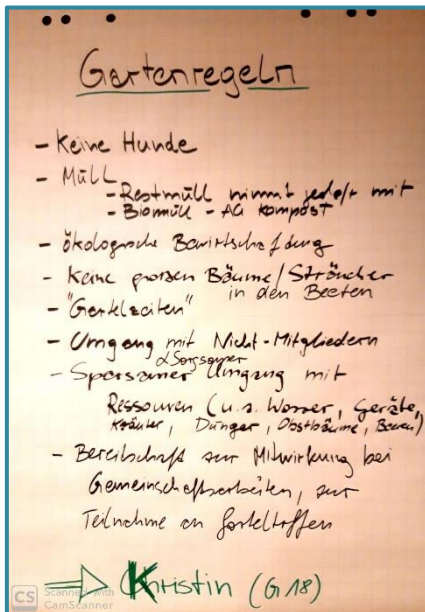 Gartenregeln
- Keine Hunde
- Müll
- Restmüll nimmt jede/r mit
- Biomüll - AG Kompost
- ökologische Bewirtschaftung
- Keine großen Bäume/Sträucher
in den Beeten
- "Gartlzeiten"
- Umgang mit Nicht-Mitgliedern
- Sparsamer & Sorgsamer Umgang mit
Ressourcen (u.a. Wasser, Geräte,
Kräuter, Dünger, Obstbäume, Beeren)
- Bereitschaft zur Mitwirkung bei
Gemeinschaftsarbeiten, zur
Teilnahme an Garteltreffen
⇒ Kristin (G18)
CS Scanned with
CamScanner